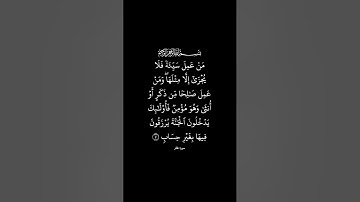 بسم الله الرحمن الرحيم
مَنْ عَمِلَ سَيِّئَةً فَلَا
يُجْزَىٰٓ إِلَّا مِثْلَهَا ۖ وَمَنْ
عَمِلَ صَٰلِحًا مِّن ذَكَرٍ أَوْ
أُنثَىٰ وَهُوَ مُؤْمِنٌ فَأُو۟لَٰٓئِكَ
يَدْخُلُونَ ٱلْجَنَّةَ يُرْزَقُونَ
فِيهَا بِغَيْرِ حِسَابٍ